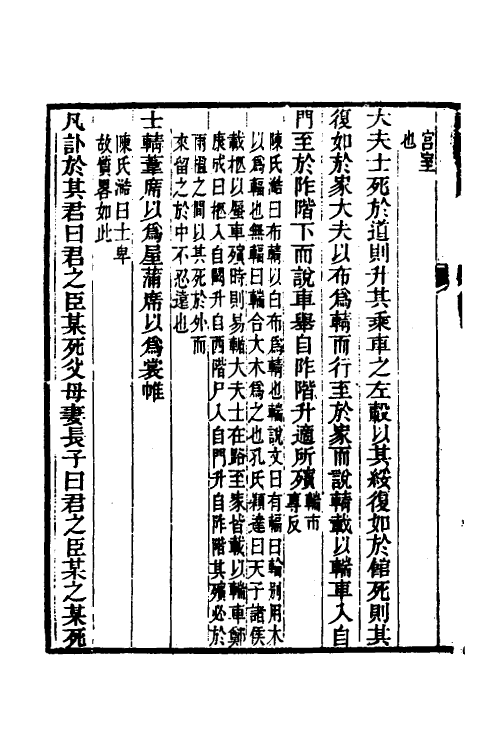 宮室
也
大夫士死於道則升其乘車之左轂以其綏復如於館死則其
復如於家大夫以布爲輤而行至於家而說輤載以輲車入自
門至於阼階下而說車舉自阼階升適所殯輲市
專反
陳氏澔曰布輤以白布爲輤也輲說文曰有輻曰輪别用木
以爲輻也無輻曰輇合大木爲之也孔氏穎達曰天子諸侯
載柩以蜃車殯時則易輴大夫士在路至家皆載以輲車鄭
康成曰柩入自闕升自西階尸入自門升自阼階其殯必於
兩楹之間以其死於外而
來留之於中不忍遠也
士輤葦席以爲屋蒲席以爲裳帷
陳氏澔曰士卑
故質畧如此
凡訃於其君曰君之臣某死父母妻長子曰君之臣某之某死